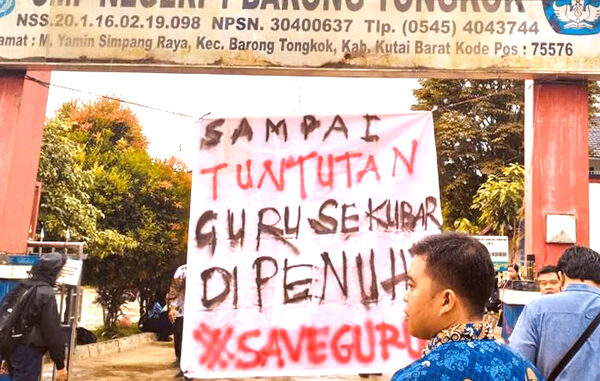 SMP NEGERI 1 BARONG TONGKOK
NSS.20.1.16.02.19.098 NPSN. 30400637 Tlp. (0545) 4043744
Alamat : M. Yamin Simpang Raya, Kec. Barong Tongkok, Kab. Kutai Barat Kode Pos : 75576
SAMPAI
TUNTUTAN
GURU SEKUBAR
DIPENUHI
#SAVEGURU